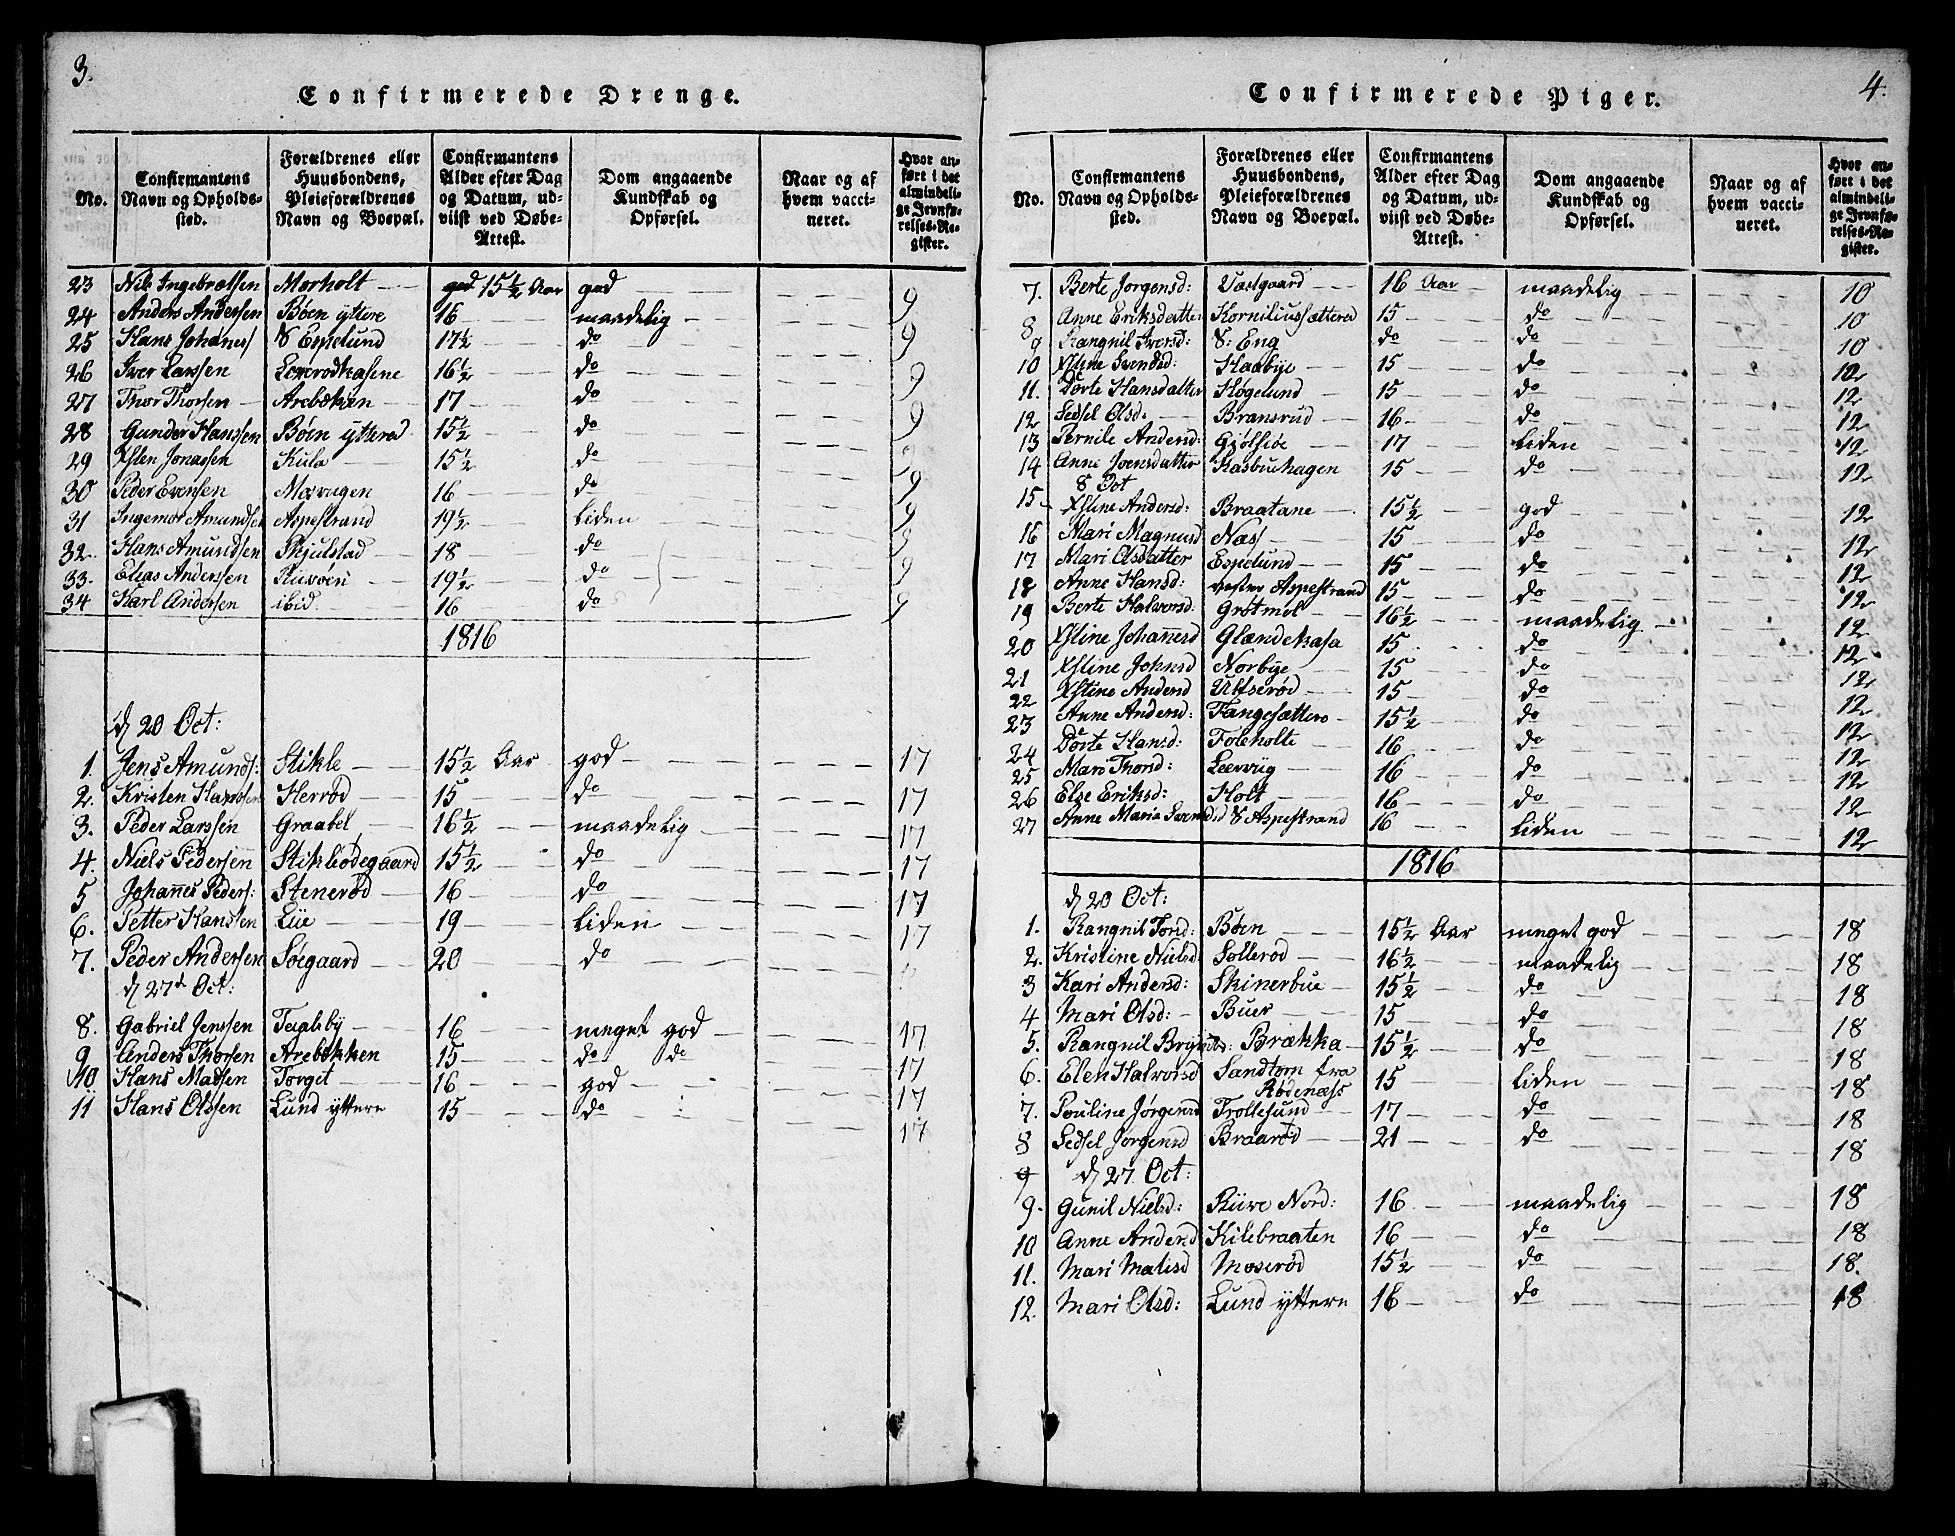 3.
Confirmerede Drenge.
No.
Confirmantens Navn og Opholdssted.
Forældrenes eller Huusbondens, Pleieforældrenes Navn og Boepæl.
Confirmantens Alder efter Dag og Datum, udviist ved Døbe-Attest.
Dom angaaende Kundskab og Opførsel.
Naar og af hvem vaccineret.
Hvor anført i det almindelige Jevnførelses-Register.
23 Nils Ingebretsen Morholt 15½ Aar god 9
24 Anders Andersen Böen yttere 16 maadelig 9
25 Hans Johaness Espelund 17½ do 9
26 Iver Larssen 16½ do 9
27 Thor Thorsen Arebækken 17 do 9
28 Gunder Hanssen Böen ytterød 15½ do 9
29 Jonassen Kula 15½ do 9
30 Peder Evensen 16 do 9
31 Ingemor Amundsen Aspestrand 19½ liden 9
32. Hans Amundsen Skjulstad 18 do 9
33. Elias Anderssen 19½ do 9
34 Karl Andersen ibid. 16 do 9
1816
d 20 Oct:
1. Jens Amunds: Stikle 15½ Aar god 17
2. Kristen Hanssen Herröd 15 do 17
3. Peder Larssen Graabel 16½ maadelig 17
4. Niels Pedersen Stikleödegaard 15½ do 17
5 Johanes Peders: Steneröd 16 do 17
6. Petter Hanssen Lie 19 liden 17
7. Peder Andersen Söegaard 20 do
d 27d Oct:
8. Gabriel Jenssen Tagleby 16 meget god 17
9 Anders Thorsen Arebækken 15 do do 17
10 Hans Madsen Torget 16 god 17
11 Hans Olssen Lund yttere 15 do 17
4.
Confirmerede Piger.
No.
Confirmantens Navn og Opholdssted.
Forældrenes eller Huusbondens, Pleieforældrenes Navn og Boepæl.
Confirmantens Alder efter Dag og Datum, udviist ved Døbe-Attest.
Dom angaaende Kundskab og Opførsel.
Naar og af hvem vaccineret.
Hvor anført i det almindelige Jevnførelses-Register.
7. Berte Jorgensd: Vestgaard 16 Aar maadelig 10
8 Anne Eriksdatter Korniliussætterød 15 do 10
9 Rangnil Iversd: Eng do do 10
10 Xstine Svendsd: Haabye 15 do 12
11. Dorte Hansdatter Högelund 15 do 12
12 Sedsel Olsd: Bransrud 16 do 12
13 Pernile Andersd: Gjölsiöe 17 liden 12
14 Anne Svensdatter Kasbuhagen 15 do 12
8 Oct
15 Xstine Andersd: Braatane 15½ god 12
16 Mari Magnusd Næss 15 do 12
17 Mari Olsdatter Espelund 15 do 12
18 Anne Hansd: vestre Aspestrand 15 do 12
19 Berte Halversd: Grötmol 16½ maadelig 12
20 Xstine Johanesd Glændekasa 15 do 12
21 Xstine Johnsd Norbye 15 do 12
22 Xstine Andersd Ulfseröd 15 do 12
23 Anne Andersd: Fangesættere 15½ do 12
24 Dorte Hansd: Foleholte 16 do 12
25 Mari Thorsd: Leerviig 16 do 12
26 Else Eriksd: Holt 16 do 12
27 Anne Maria Svendsd Aspestrand 16 liden 12
1816
d 20 Oct:
1. Rangnil Torsd: Böen 15½ Aar meget god 18
2. Kristine Nielsd: Solleröd 16½ maadelig 18
3 Kari Andersd: Skinerbue 15½ do 18
4 Mari Olsd: Buer 15 do 18
5. Rangnil Brækka 15½ do 18
6. Elen Halvorsd Sandtorn fra Rödenæss 15 liden 18
7. Pouline Jörgensd Trollesund 17 do 18
8 Sedsel Jörgensd Braaröd 21 do 18
9 d 27. Oct:
9. Gunil Nielsd: Riive Nord: 16 maadelig 18
10 Anne Andersd Kilebraaten 16 do 18
11. Mari Matisd Moseröd 15½ do 18.
12. Mari Olsd: Lund yttere 16 do 18